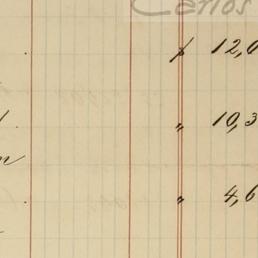 Carlos
$ 12,0
" 10,3
n
" 4,6